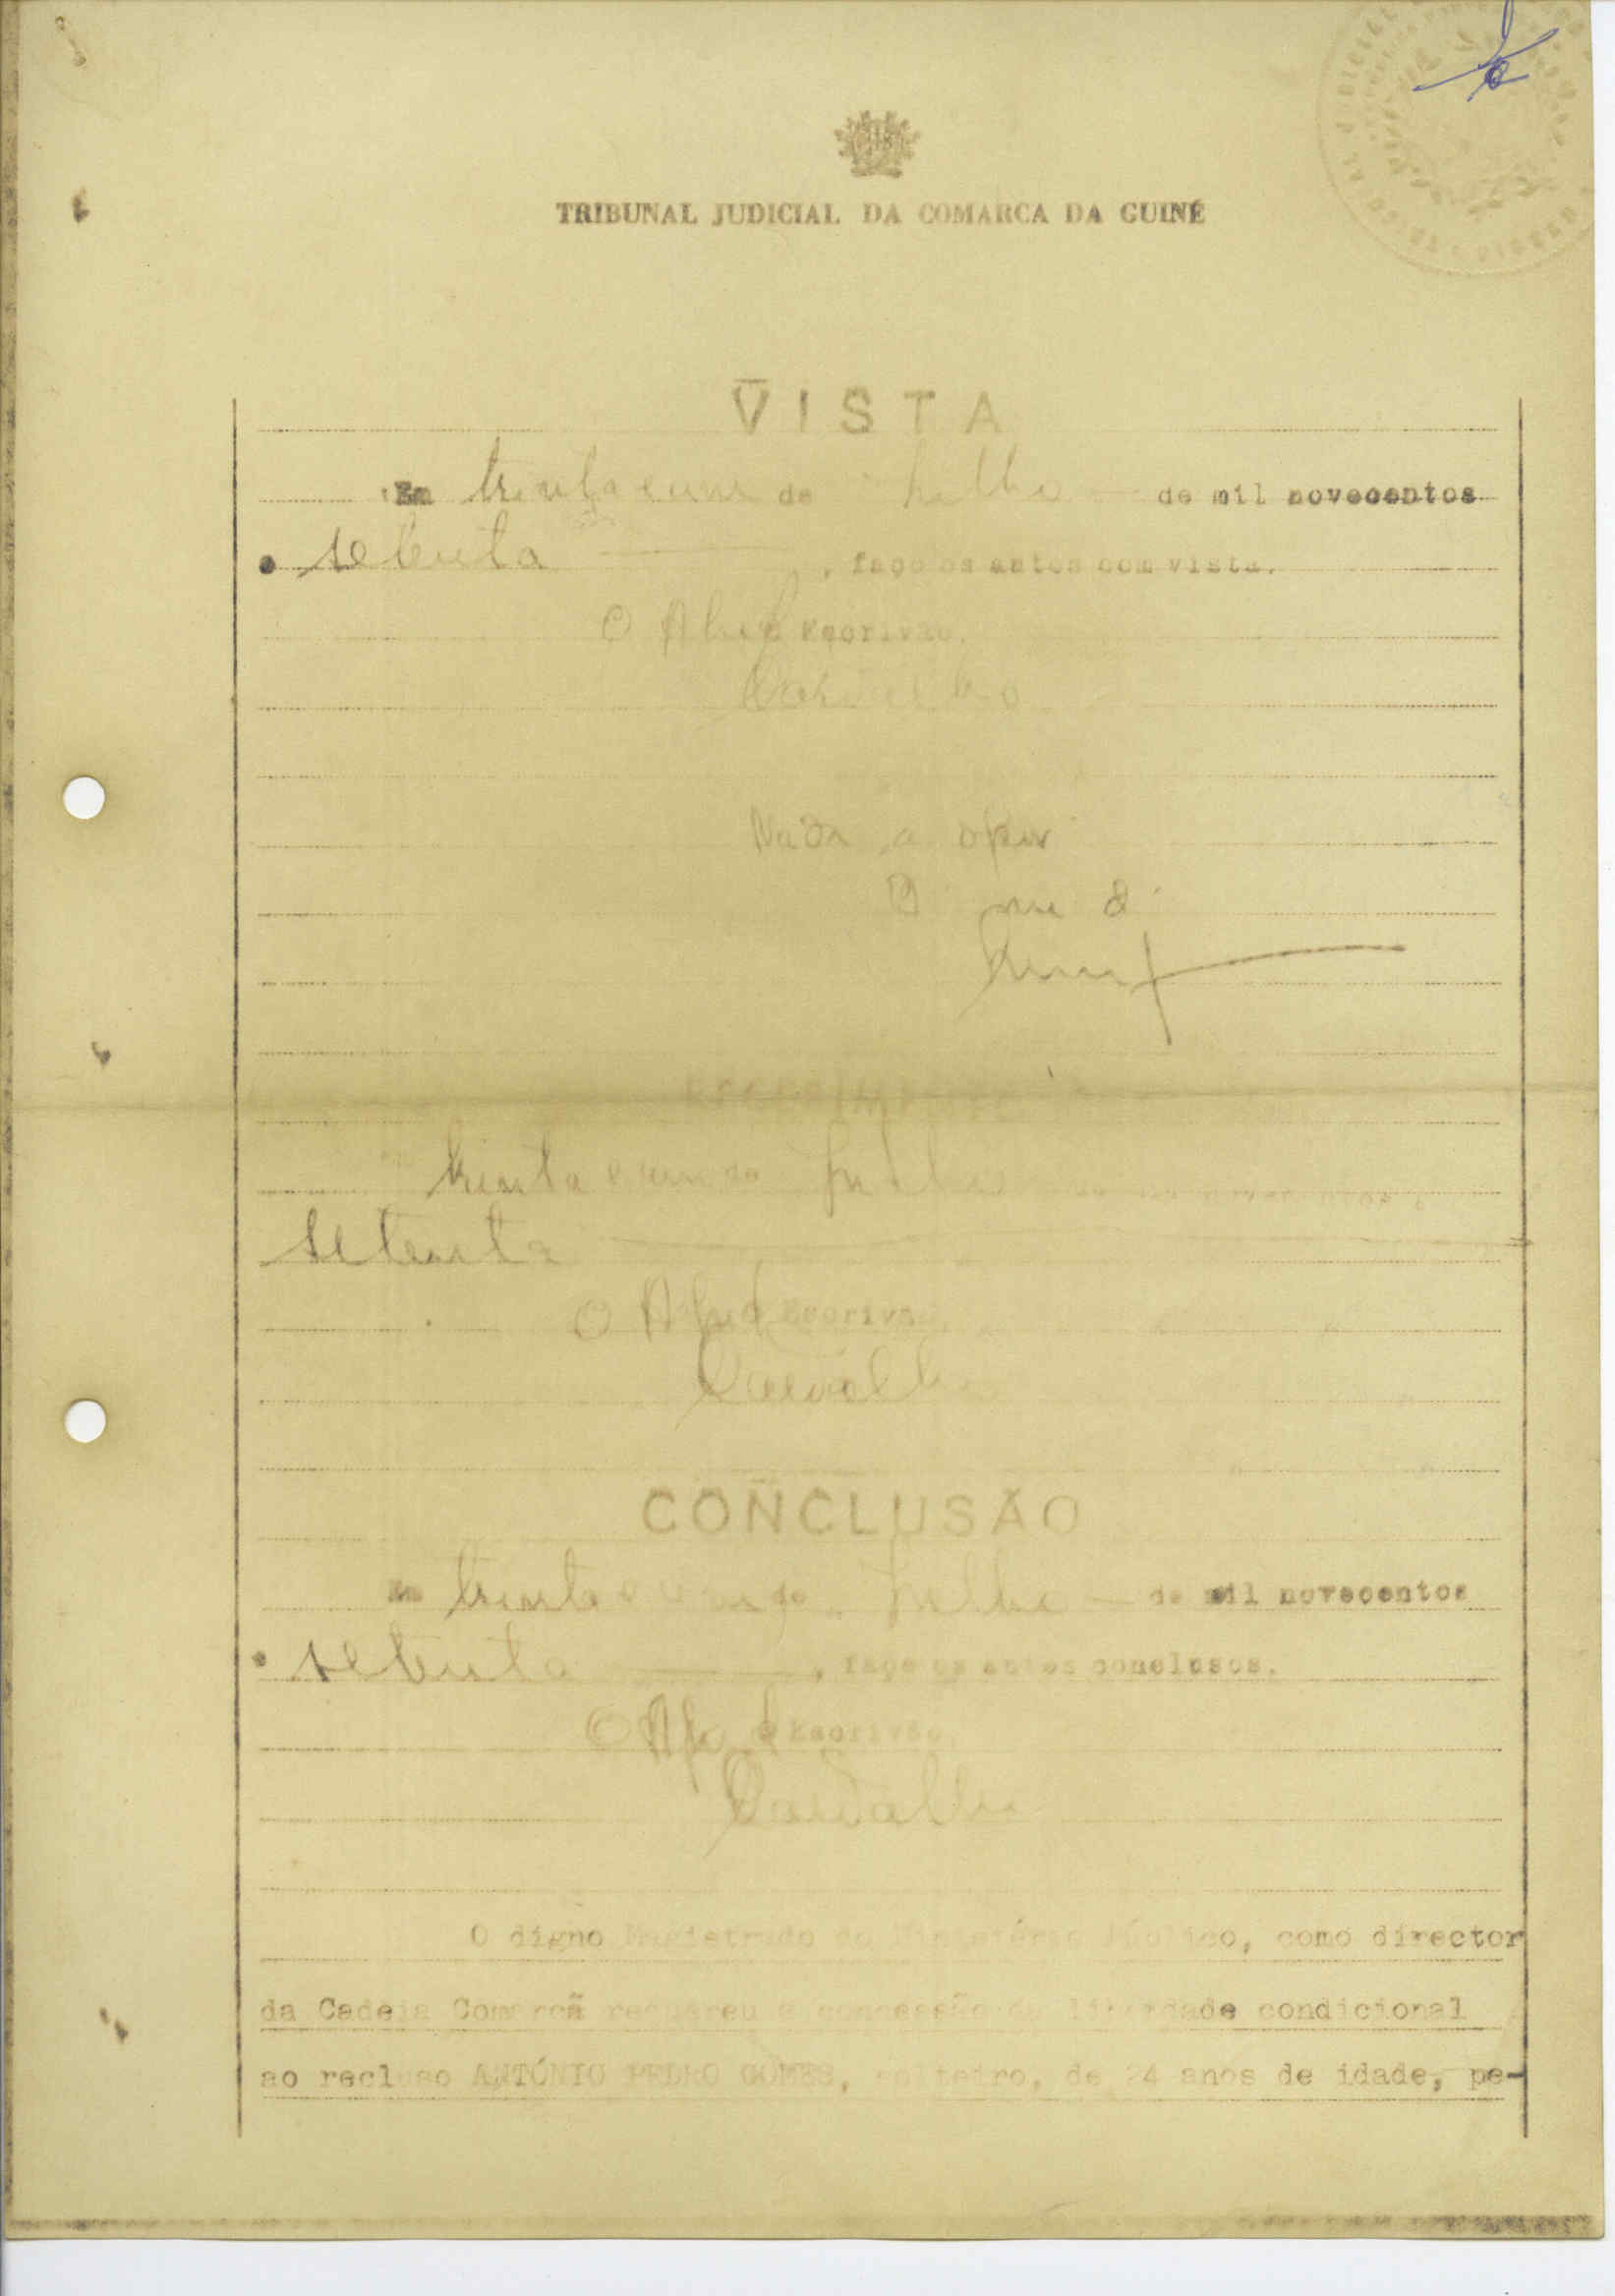 TRIBUNAL JUDICIAL DA COMARCA DA GUINÉ
VISTA
Em trinta e um de Julho de mil novecentos
e setenta, faço os autos com vista.
O Ajud. Escrivão,
Carvalho
Nada a opor
RECEBIMENTO
trinta e um de Julho novecentos e
setenta
O Ajud. Escrivão,
Carvalho
CONCLUSÃO
Em trinta e um de Julho de mil novecentos
e setenta, faço os autos conclusos.
O Ajud. Escrivão,
Carvalho
O digno Magistrado do Ministério Público, como director
da Cadeia Comarcã requereu a concessão da liberdade condicional
ao recluso ANTÓNIO PEDRO GOMES, solteiro, de 24 anos de idade, pe-